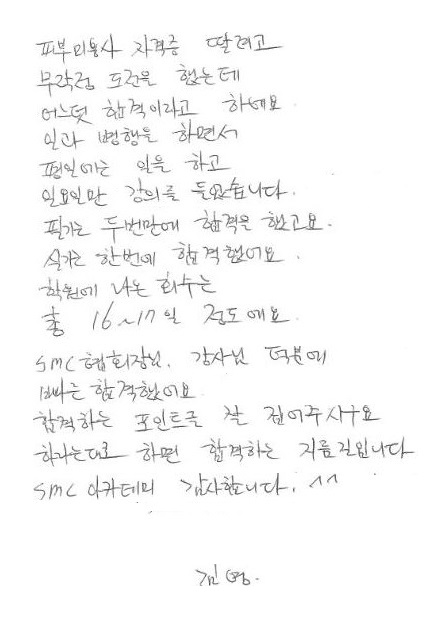 피부미용사 자격증 딸려고
무작정 도전을 했는데
어느덧 합격이라고 하네요.
일과 병행을 하면서
평일에는 일을 하고
일요일만 강의를 들었습니다.
필기는 두번만에 합격을 했고요.
실기는 한번에 합격했어요.
학원에 나온 회수는
총 16~17일 정도에요.
SMC협회장님, 강사님 덕분에
빠른 합격했어요
합격하는 포인트를 잘 집어주시구요
하라는대로 하면 합격하는 지름길입니다
SMC 아카데미 감사합니다. ^^
김 영.